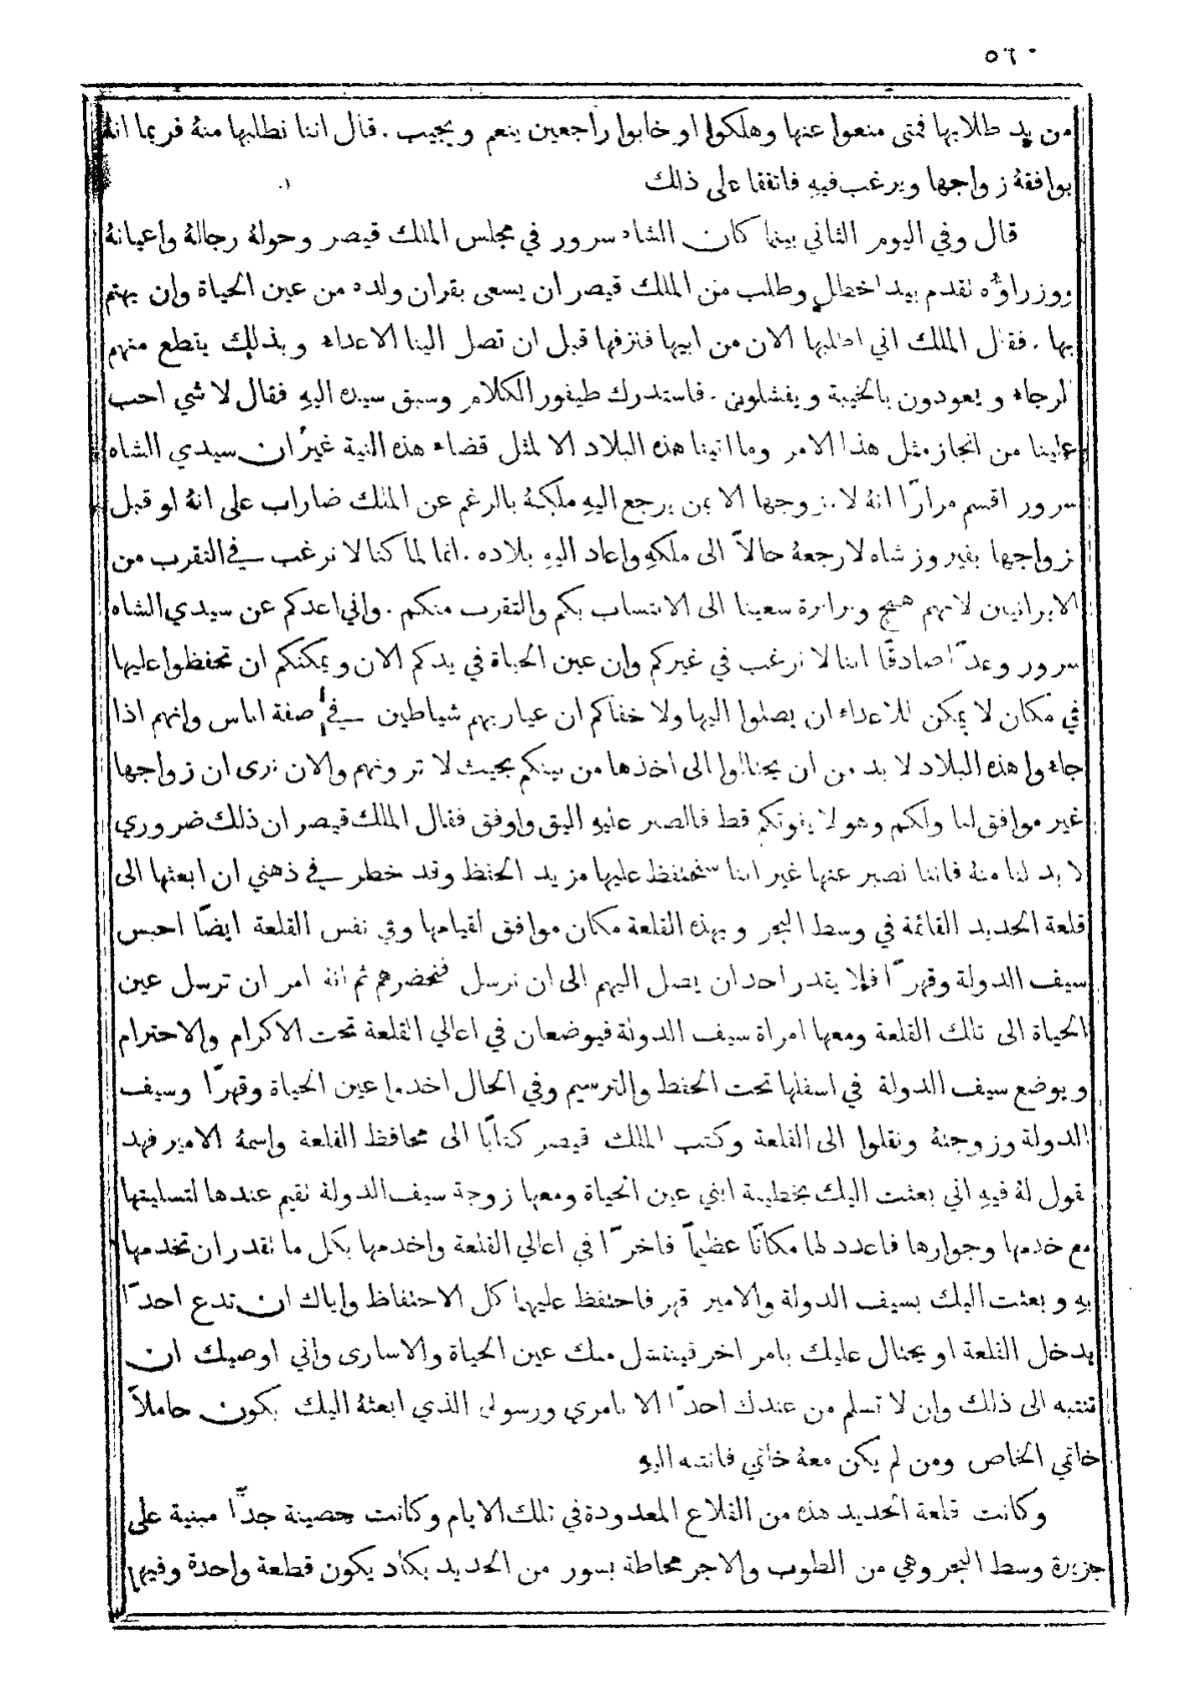 ٥٦٠
من يد طلابها فمتى منعوا عنها وهلكوا او خابوا راجعين ينعم ويجيب . قال اننا نطلبها منهُ فربما انهُ
يوافقهُ زواجها ويرغب فيهِ فاتفقا على ذلك
قال وفي اليوم الثاني بينما كان الشاه سرور في مجلس الملك قيصر وحولهُ رجالهُ واعيانهُ
ووزراؤُه تقدم بيد اخطل وطلب من الملك قيصر ان يسعى بقران ولده من عين الحياة وان يهتم
بها . فقال الملك اني اطلبها الان من ابيها فنزفها قبل ان تصل الينا الاعداء وبذلك يقطع منهم
الرجاء ويعودون بالخيبة ويفشلون . فاستدرك طيفور الكلام وسبق سيده اليهِ فقال لا شي احب
علينا من انجاز مثل هذا الامر وما اتينا هذه البلاد الا لمثل قضاء هذه النية غير ان سيدي الشاه
سرور اقسم مرارًا انهُ لا يزوجها الا بمن يرجع اليهِ ملكهُ بالرغم عن الملك ضاراب على انهُ لو قبل
زواجها بفيروز شاه لارجعهُ حالاً الى ملكهِ واعاد اليهِ بلاده . انما لما كنا لا نرغب في التقرب من
الايرانيين لانهم همج وبرابرة سعينا الى الانتساب بكم والتقرب منكم . واني اعدكم عن سيدي الشاه
سرور وعدًا صادقًا اننا لا نرغب في غيركم وان عين الحياة في يدكم الان ويمكنكم ان تحفظوا عليها
في مكان لا يمكن للاعداء ان يصلوا اليها ولا خفاكم ان عياريهم شياطين في صفة اناس وانهم اذا
جاءوا هذه البلاد لا بد من ان يحتالوا الى اخذها من بينكم بحيث لا ترونهم والان نرى ان زواجها
غير موافق لنا ولكم وهو لا يفوتكم قط فالصبر عليهِ اليق واوفق فقال الملك قيصر ان ذلك ضروري
لا بد لنا منهُ فاننا نصبر عنها غير اننا سنحتفظ عليها مزيد الحفظ وقد خطر في ذهني ان ابعثها الى
قلعة الحديد القائمة في وسط البحر وبهذه القلعة مكان موافق لقيامها وفي نفس القلعة ايضًا احبس
سيف الدولة وقهرًا فلا يقدر احد ان يصل اليهم الى ان نرسل فنحضرهم ثم انهُ امر ان ترسل عين
الحياة الى تلك القلعة ومعها امراة سيف الدولة فيوضعان في اعالي القلعة تحت الاكرام والاحترام
ويوضع سيف الدولة في اسفلها تحت الحفظ والترسيم وفي الحال اخذوا عين الحياة وقهرًا وسيف
الدولة وزوجتهُ ونقلوا الى القلعة وكتب الملك قيصر كتابًا الى محافظ القلعة واسمهُ الامير فهد
يقول لهُ فيهِ اني بعثت اليك بخطيبة ابني عين الحياة ومعها زوجة سيف الدولة تقيم عندها لتسليتها
مع خدمها وجوارها فاعدد لها مكانًا عظيمًا فاخرًا في اعالي القلعة واخدمها بكل ما تقدر ان تخدمها
بهِ وبعثت اليك بسيف الدولة والامير قهر فاحتفظ عليهما كل الاحتفاظ واياك ان تدع احدًا
يدخل القلعة او يحتال عليك بامر اخر فينتشل منك عين الحياة والاسارى واني اوصيك ان
تنتبه الى ذلك وان لا تسلم من عندك احدًا الا بامري ورسولي الذي ابعثهُ اليك يكون حاملاً
خاتمي الخاص ومن لم يكن معهُ خاتمي فانتبه اليهِ
وكانت قلعة الحديد هذه من القلاع المعدودة في تلك الايام وكانت حصينة جدًّا مبنية على
جزيرة وسط البحر وهي من الطوب والاجر محاطة بسور من الحديد يكاد يكون قطعة واحدة وفيها